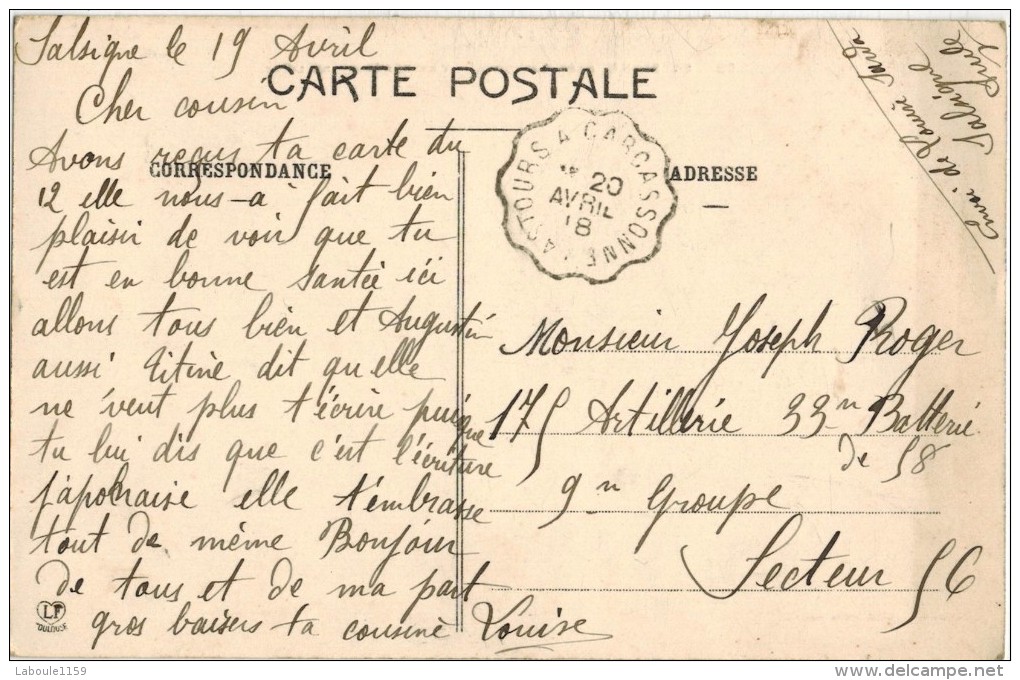 Salsigne le 19 Avril
CARTE POSTALE
Cher cousin
CORRESPONDANCE
Avons reçus ta carte du
12 elle nous-a fait bien
plaisir de voir que tu
est en bonne santée ici
allons tous bien et Augustin
aussi Titine dit qu'elle
ne veut plus t'écrire puisque
tu lui dis que c'est l'écriture
japonaise elle t'embrasse
tout de même Bonjour
de tous et de ma part
gros baisers ta cousine Louise
LF
TOULOUSE
LASTOURS A CARCASSONNE
20
AVRIL
18
ADRESSE
de Louise
Salsigne
Aude
Monsieur Joseph Roger
175 Artillerie 33m Batterie
de 58
9m Groupe
Secteur 56
Laboule1159
www.delcampe.net